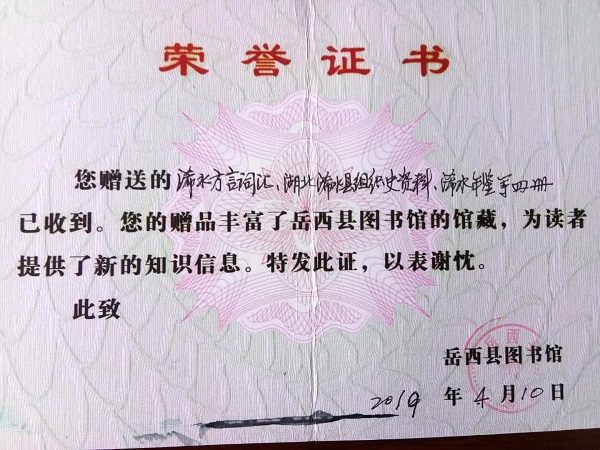 荣誉证书
您赠送的浠水方言词汇、湖北浠水县组织史资料、浠水年鉴等四册
已收到。您的赠品丰富了岳西县图书馆的馆藏，为读者
提供了新的知识信息。特发此证，以表谢忱。
此致
岳西县图书馆
2019年4月10日